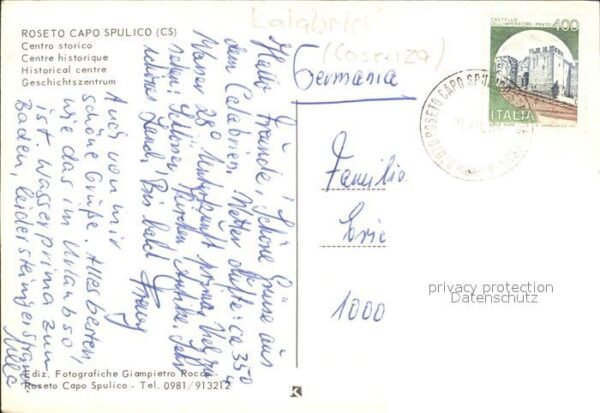 ROSETO CAPO SPULICO (CS)
Centro storico
Centre historique
Historical centre
Geschichtszentrum
Kalabrien
(Cosenza)
Germania
CASTELLO
DELL'IMPERATORE - PRATO
400
ITALIA
ROSETO CAPO SPULICO
Hallo Freunde, Schöne Grüße aus
dem Calabrien. Wetter Lüfte: ca 35°
Wasser 28° Unterkunft prima. Viel zu
sehen: Schöne Kirchen Antike. Sehr
schönes Land. Bis bald
Franz
Auch von mir
schöne Grüße. Alles bestens,
wie das im Urlaub so
ist. Wasser prima zum
Baden, leider steiniger Strand.
Familie
Eric
1000
privacy protection
Datenschutz
Ediz. Fotografiche Giampietro Rocco
Roseto Capo Spulico - Tel. 0981/913212
K